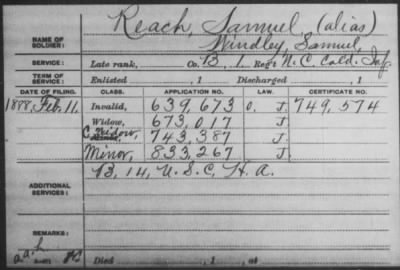 NAME OF SOLDIER: Reach, Samuel (alias)
Windley, Samuel,
SERVICE: Late rank, Co. B, 1 Reg't N.C. Cold. Inf.
TERM OF SERVICE: Enlisted , 1 Discharged , 1
DATE OF FILING. CLASS. APPLICATION NO. LAW. CERTIFICATE NO.
1888, Feb. 11, Invalid, 639,673 O. J. 749,574
Widow, 673,017 J.
C. Widow, 743,387 J.
Minor, 833,267 J.
ADDITIONAL SERVICES: B, 14, U.S.C.H.A.
REMARKS:
Died , 1 , at